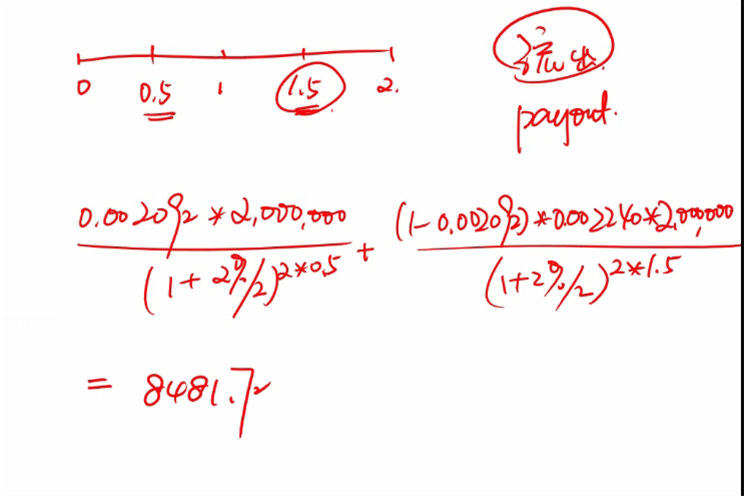 0 0.5 1 1.5 2.
流出
payout.
0.002092*2,000,000 / (1+2%/2)^2*0.5 + (1-0.002092)*0.002240*2,000,000 / (1+2%/2)^2*1.5
= 8481.72